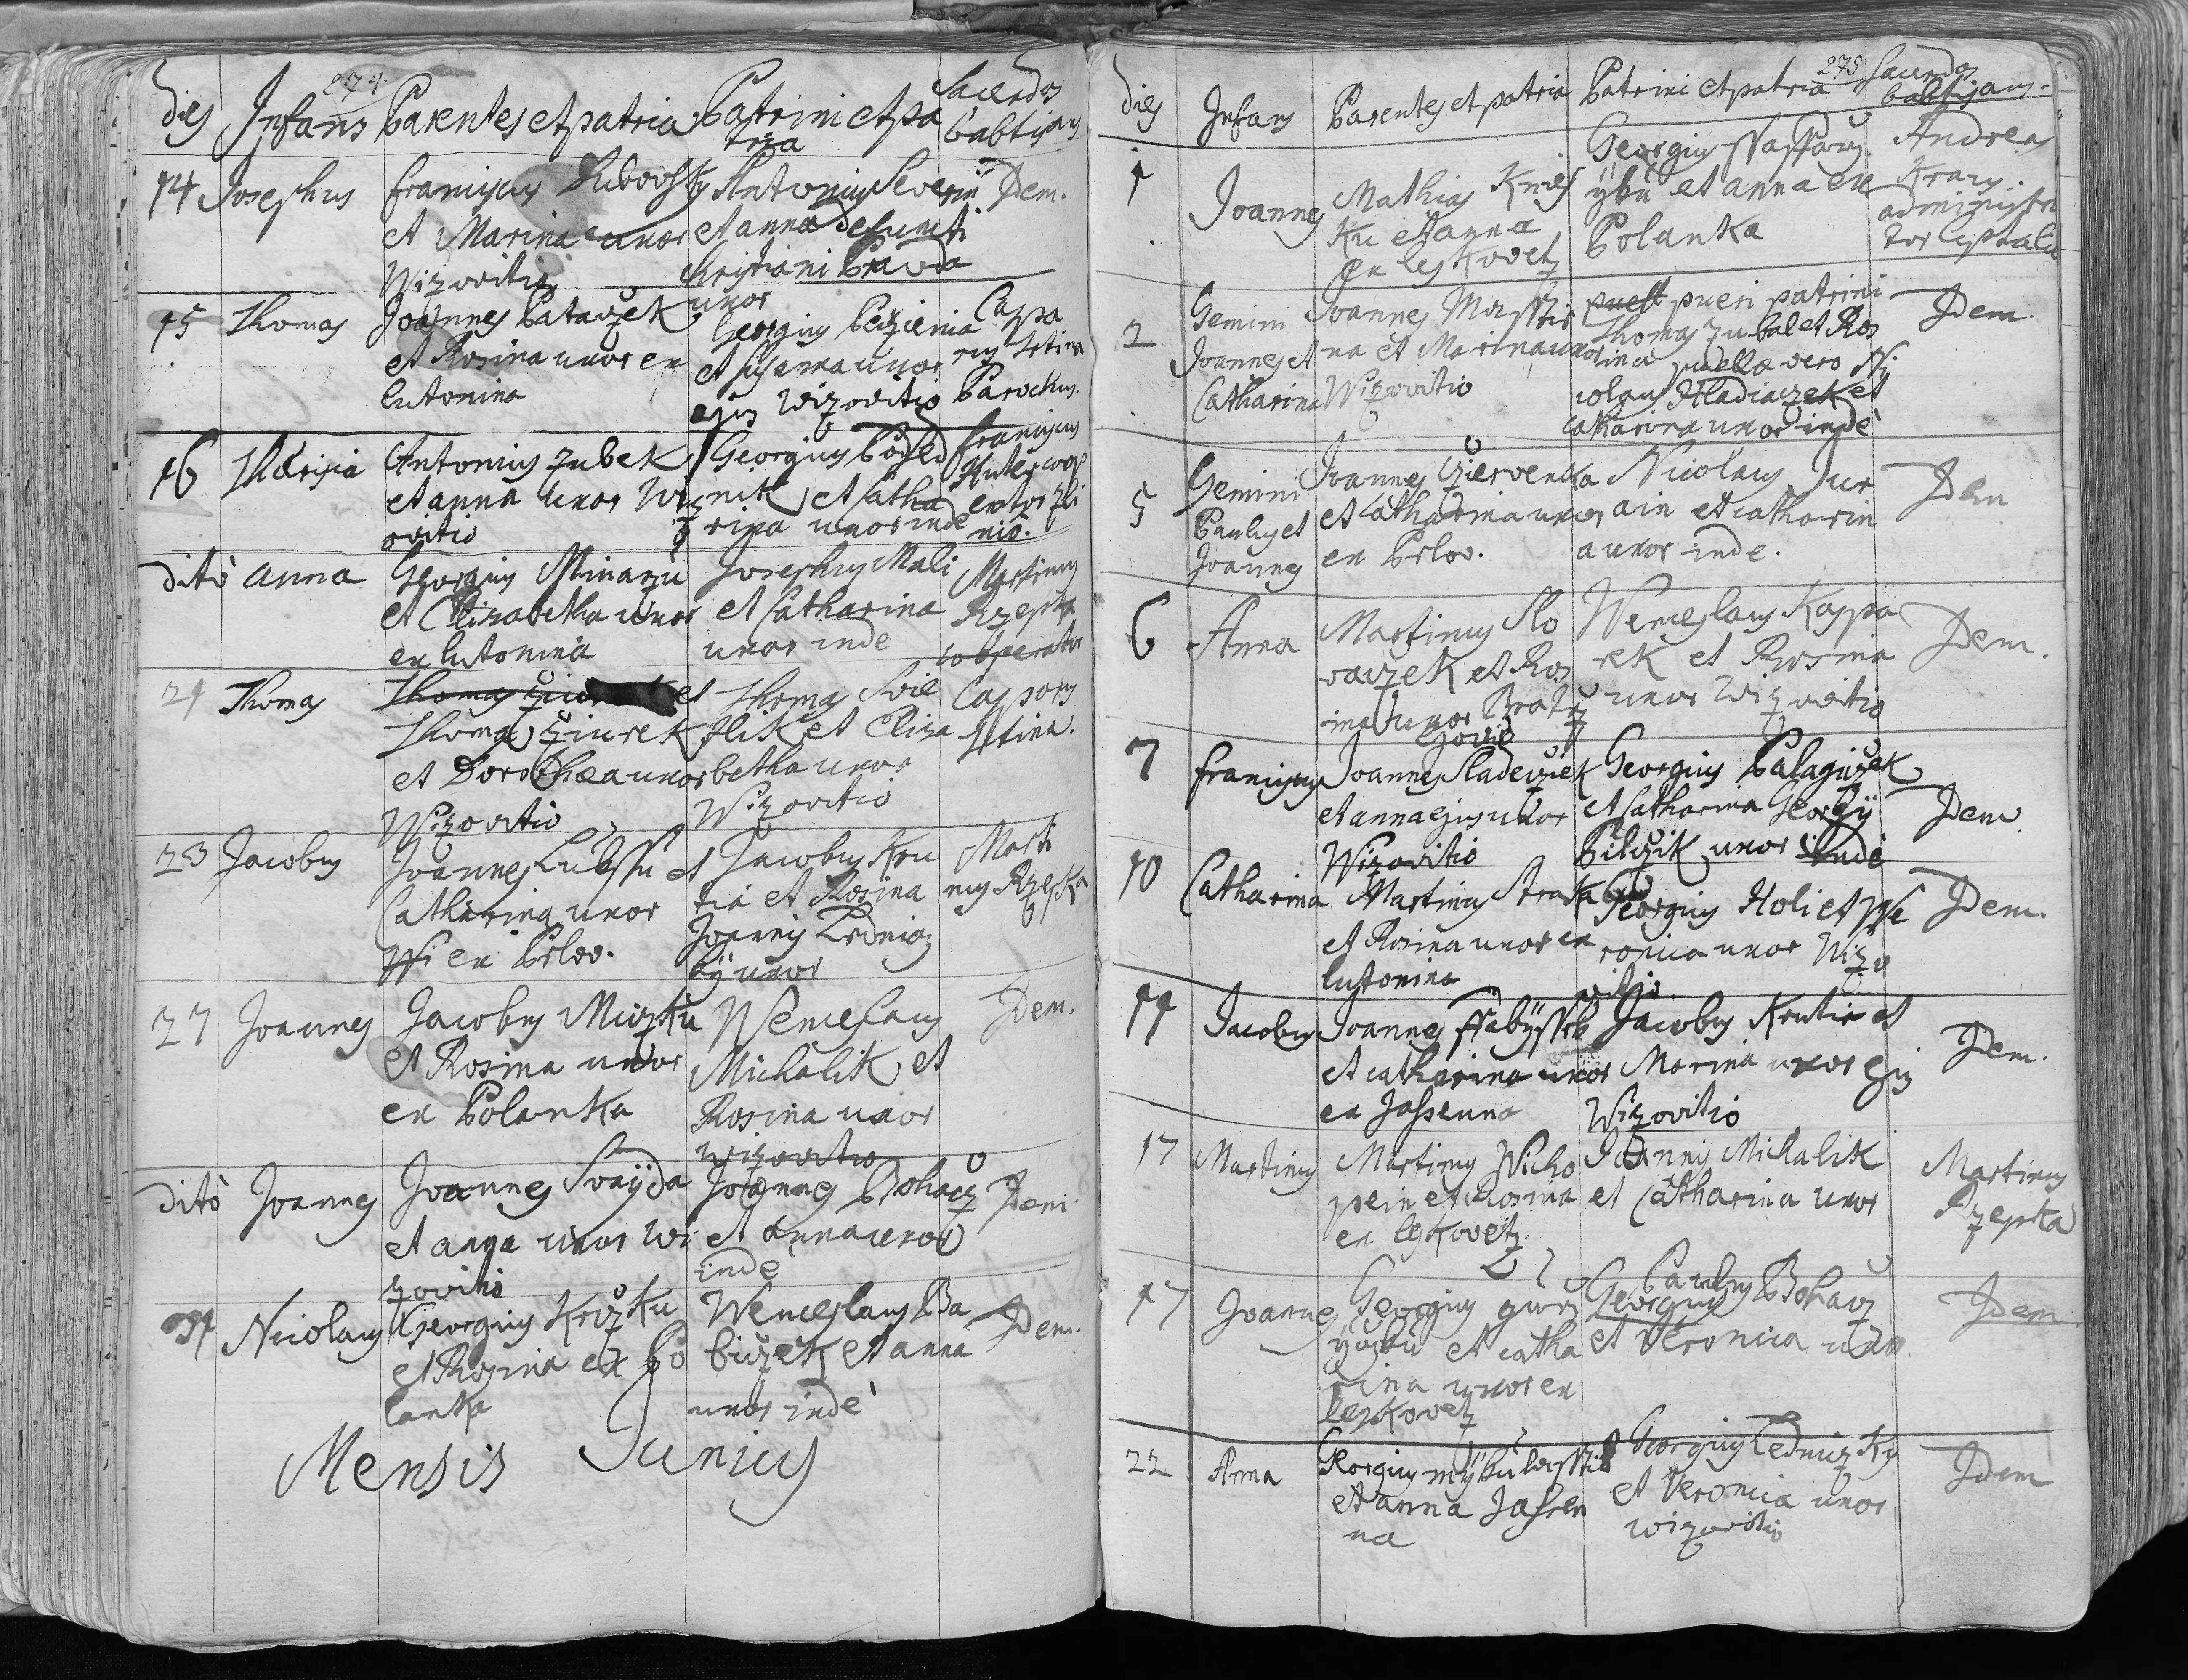 274.
dies Infans Parentes et patria Patrini et pa
tria
Sacerdos
babtizans
14 Josephus
et Marina uxor
Wizovitio
Antonius Severin
et anna defuncti
Christiani Prawda
uxor
Idem.
15 Thomas
Joannes Patarzek
et Rosina uxor ex
Lutonina
Georgius
et Susanna uxor
ejus Wizovitio
Caspa
rus Sstina
Parochus.
16
Antonius Zubek
et anna uxor Wiz
ovitio
Georgius Podsed
nik et Catha
rina uxor inde
Franciscus
dito anna
Georgius Mlinarzu
et Elizabetha uxor
ex Lutonina
Josephus Mali
et Catharina
uxor inde
Martinus
Rzepka
cooperator
21 Thomas
Thomas et
Thomas Ziurek
et Dorothea uxor
Wizovitio
Thomas Svie
zlik et Eliza
betha uxor
Wizovitio
Casparus
Sstina.
23 Jacobus
Joannes et
Catharina uxor
ex Prlov.
Jacobus Kru
tia et Rosina
Joannis
uxor
Marti
nus Rzepka
27 Joannes
Jacobus Miczku
et Rosina uxor
ex Polanka
Wenceslaus
Michalik et
Rosina uxor
Wizovitio
Idem.
dito Joannes
Joannes Svayda
et anna uxor Wi
zovitio
Joannes Bohacz
et anna uxor
inde
Idem.
31 Nicolaus
Georgius Krizku
et Rosina ex Po
lanka
Wenceslaus Ba
biczek et anna
uxor inde
Idem.
Mensis Junius
275
dies Infans Parentes et patria Patrini et patria
Sacerdos
babtizans.
1 Joannes
Mathias
et anna
ex Leskovetz
Georgius
et anna ex
Polanka
Andreas
Kraus.
administra
tor
2
Gemini
Joannes et
Catharina
Joannes
na et Marina uxor
Wizovitio
puell pueri patrini
Thomas Zubal et Ros
ina puellae vero Ni
colaus Hladiczek et
Catharina uxor inde
Idem.
5
Gemini
Paulus et
Joannes
Joannes Czervenka
et Catharina uxor
ex Prlov.
Nicolaus Jur
ain et Catharin
a uxor inde.
Idem
6 Anna
Martinus Slo
vaczek et Ros
ina uxor Bratrz
Wenceslaus Kaspa
rek et Rosina
uxor Wizovitio
Idem.
7 Franciscus
Joannes Sladeczek
et anna ejus uxor
Wizovitio
Georgius Palagiczek
et Catharina Georgÿ
Pilczik uxor inde
Idem
10 Catharina
Martinus Straka
et Rosina uxor ex
Lutonina
Georgius Holi et Ve
ronica uxor Wizo
vitio
Idem.
Jacobus
Joannes
et catharina uxor
ex Jassenna
Jacobus Krutia et
Marina uxor ejus
Wizovitio
Idem.
17 Martinus
Martinus Wicho
pein et Rosina
ex Leskovetz.
Joannis Michalik
et Catharina uxor
Martinus
Rzepka
17 Joannes
Georgius
et catha
rina uxor ex
Leskovetz
Paulus
Georgius Bohacz
et Veronica uxor
Idem
22 Anna
Georgius
et anna Jassen
na
Georgius Ledniczky
et Veronica uxor
wizovitio
Idem